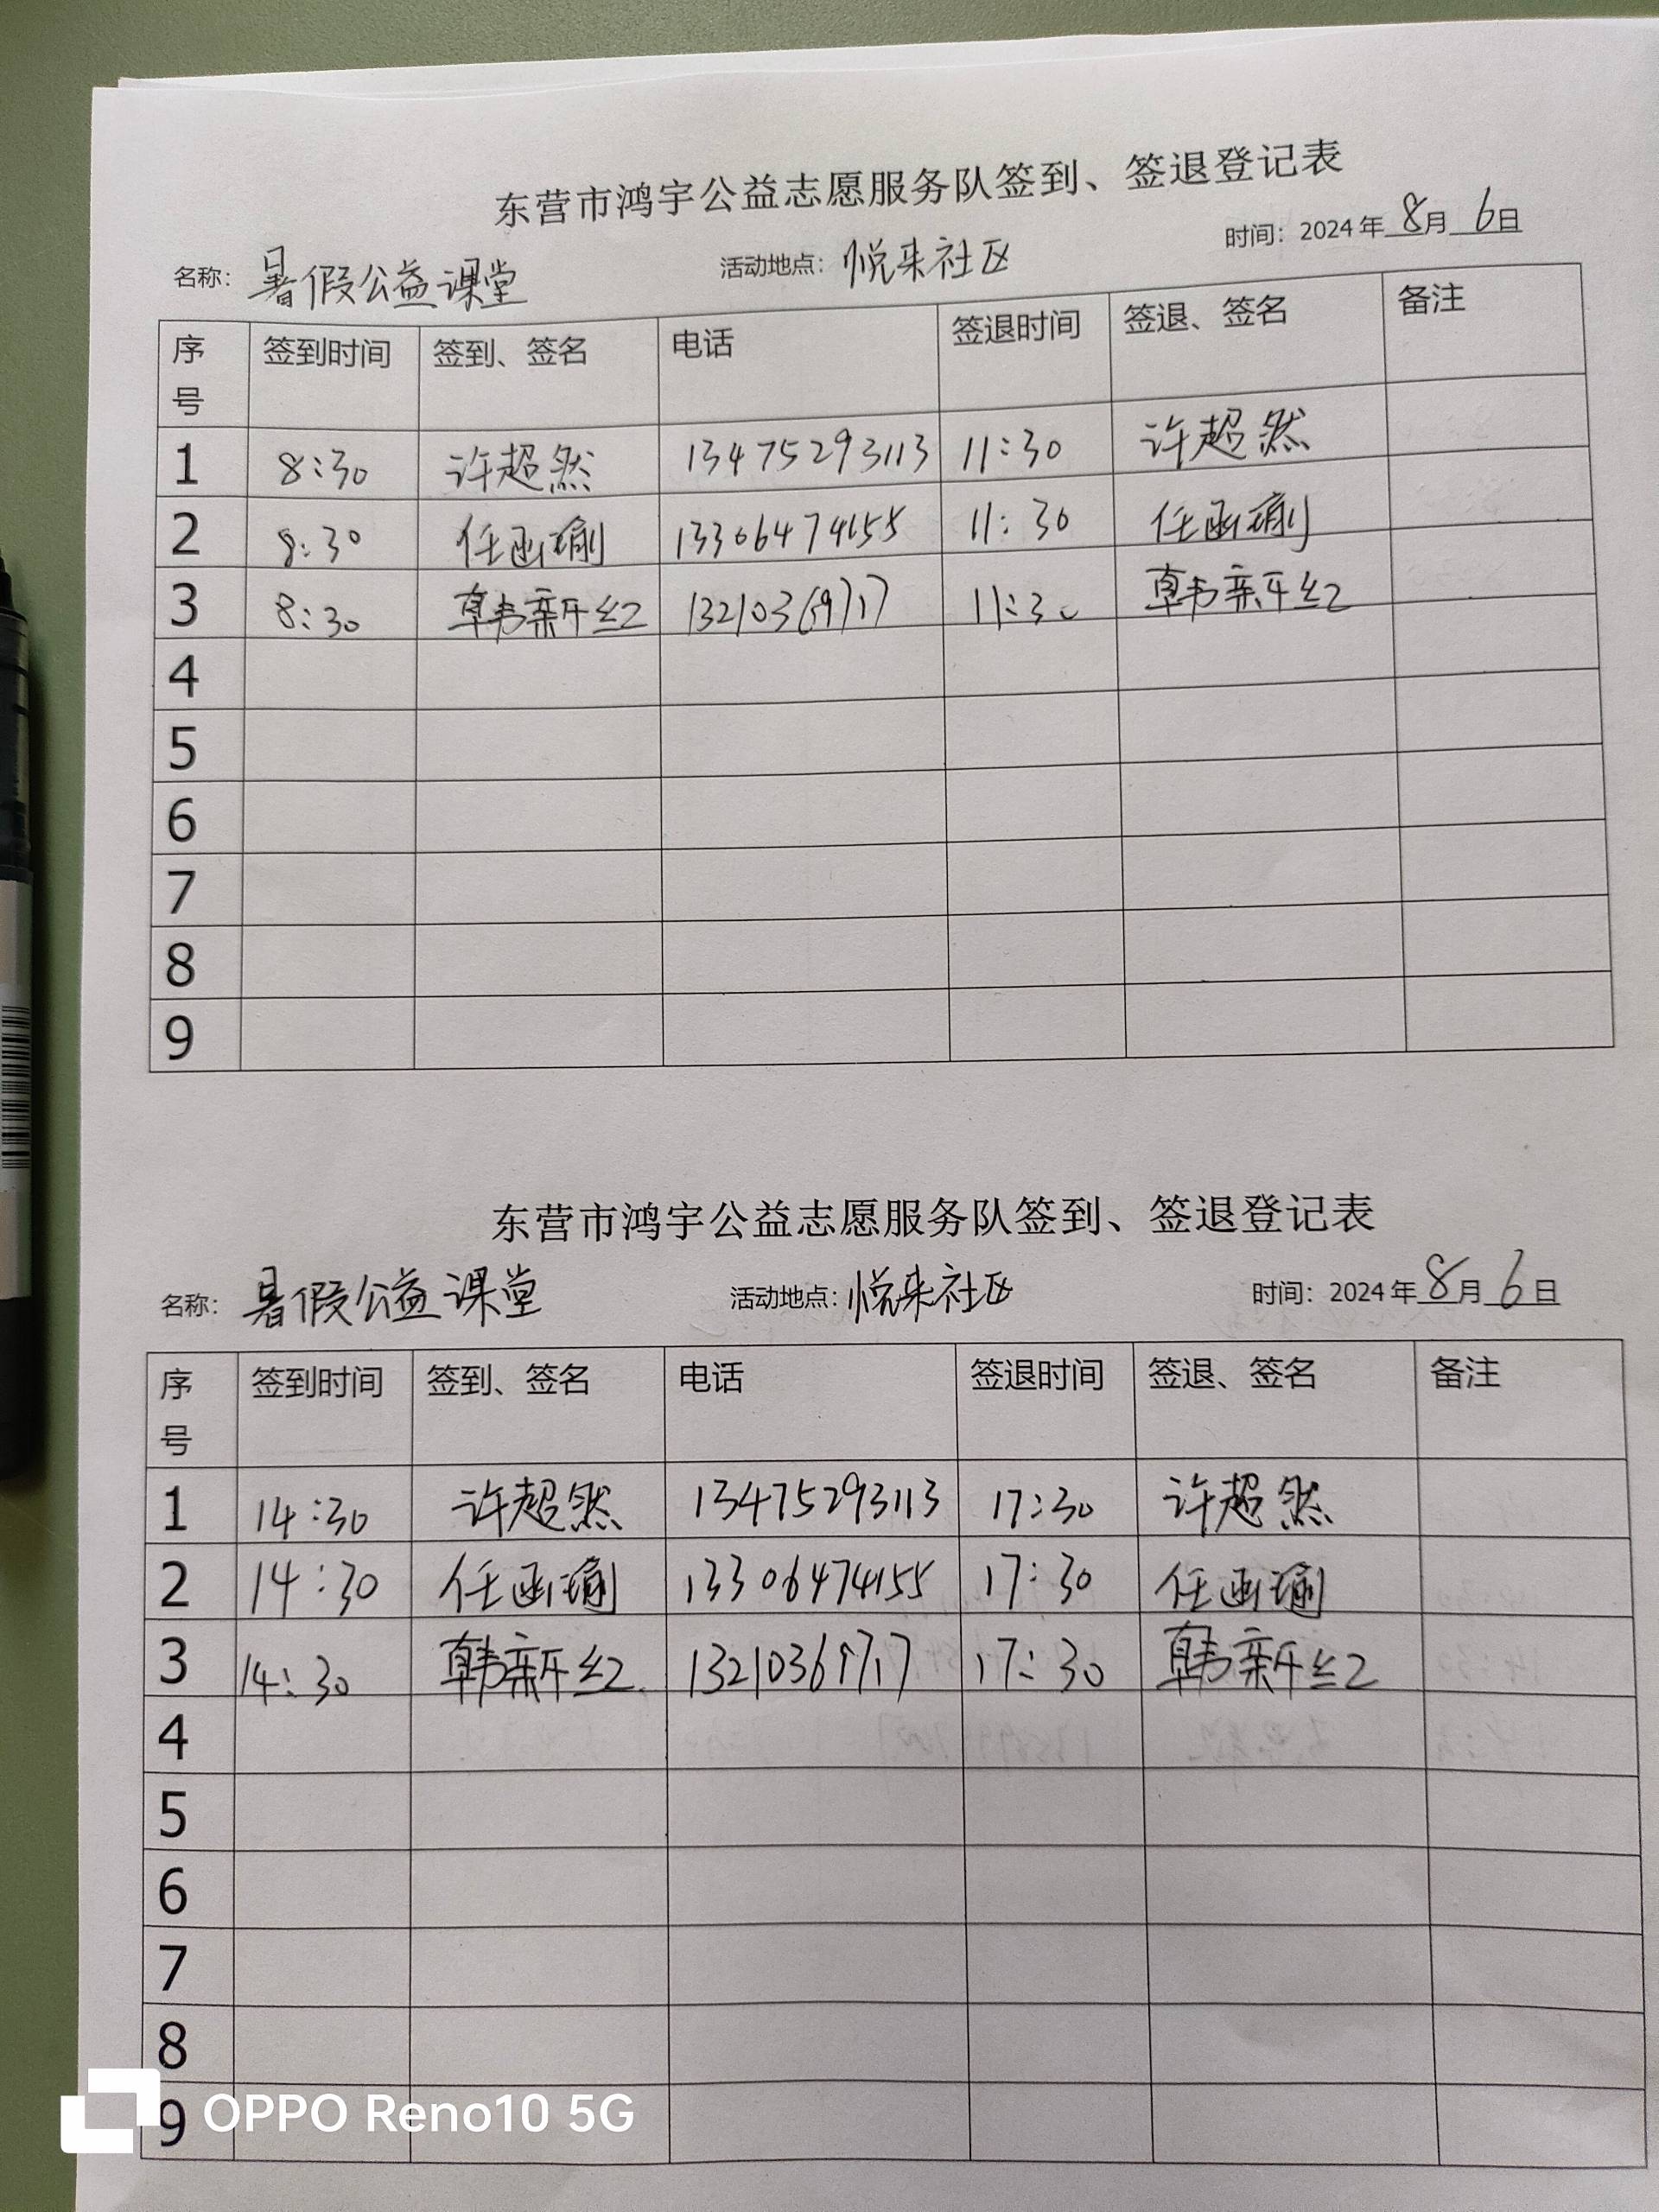 东营市鸿宇公益志愿服务队签到、签退登记表
名称：暑假公益课堂 活动地点：悦来社区 时间：2024年8月6日
序号 签到时间 签到、签名 电话 签退时间 签退、签名 备注
1 8:30 许超然 13475293113 11:30 许超然
2 8:30 任函瑜 13306474155 11:30 任函瑜
3 8:30 韩新红 11:30 韩新红
4
5
6
7
8
9
东营市鸿宇公益志愿服务队签到、签退登记表
名称：暑假公益课堂 活动地点：悦来社区 时间：2024年8月6日
序号 签到时间 签到、签名 电话 签退时间 签退、签名 备注
1 14:30 许超然 13475293113 17:30 许超然
2 14:30 任函瑜 13306474155 17:30 任函瑜
3 14:30 韩新红 17:30 韩新红
4
5
6
7
8
9
OPPO Reno10 5G